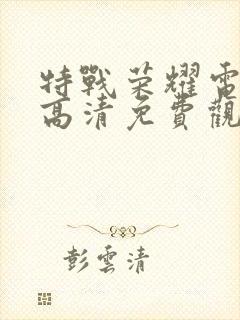 特戰荣耀電
高清免費觀
彭雲清